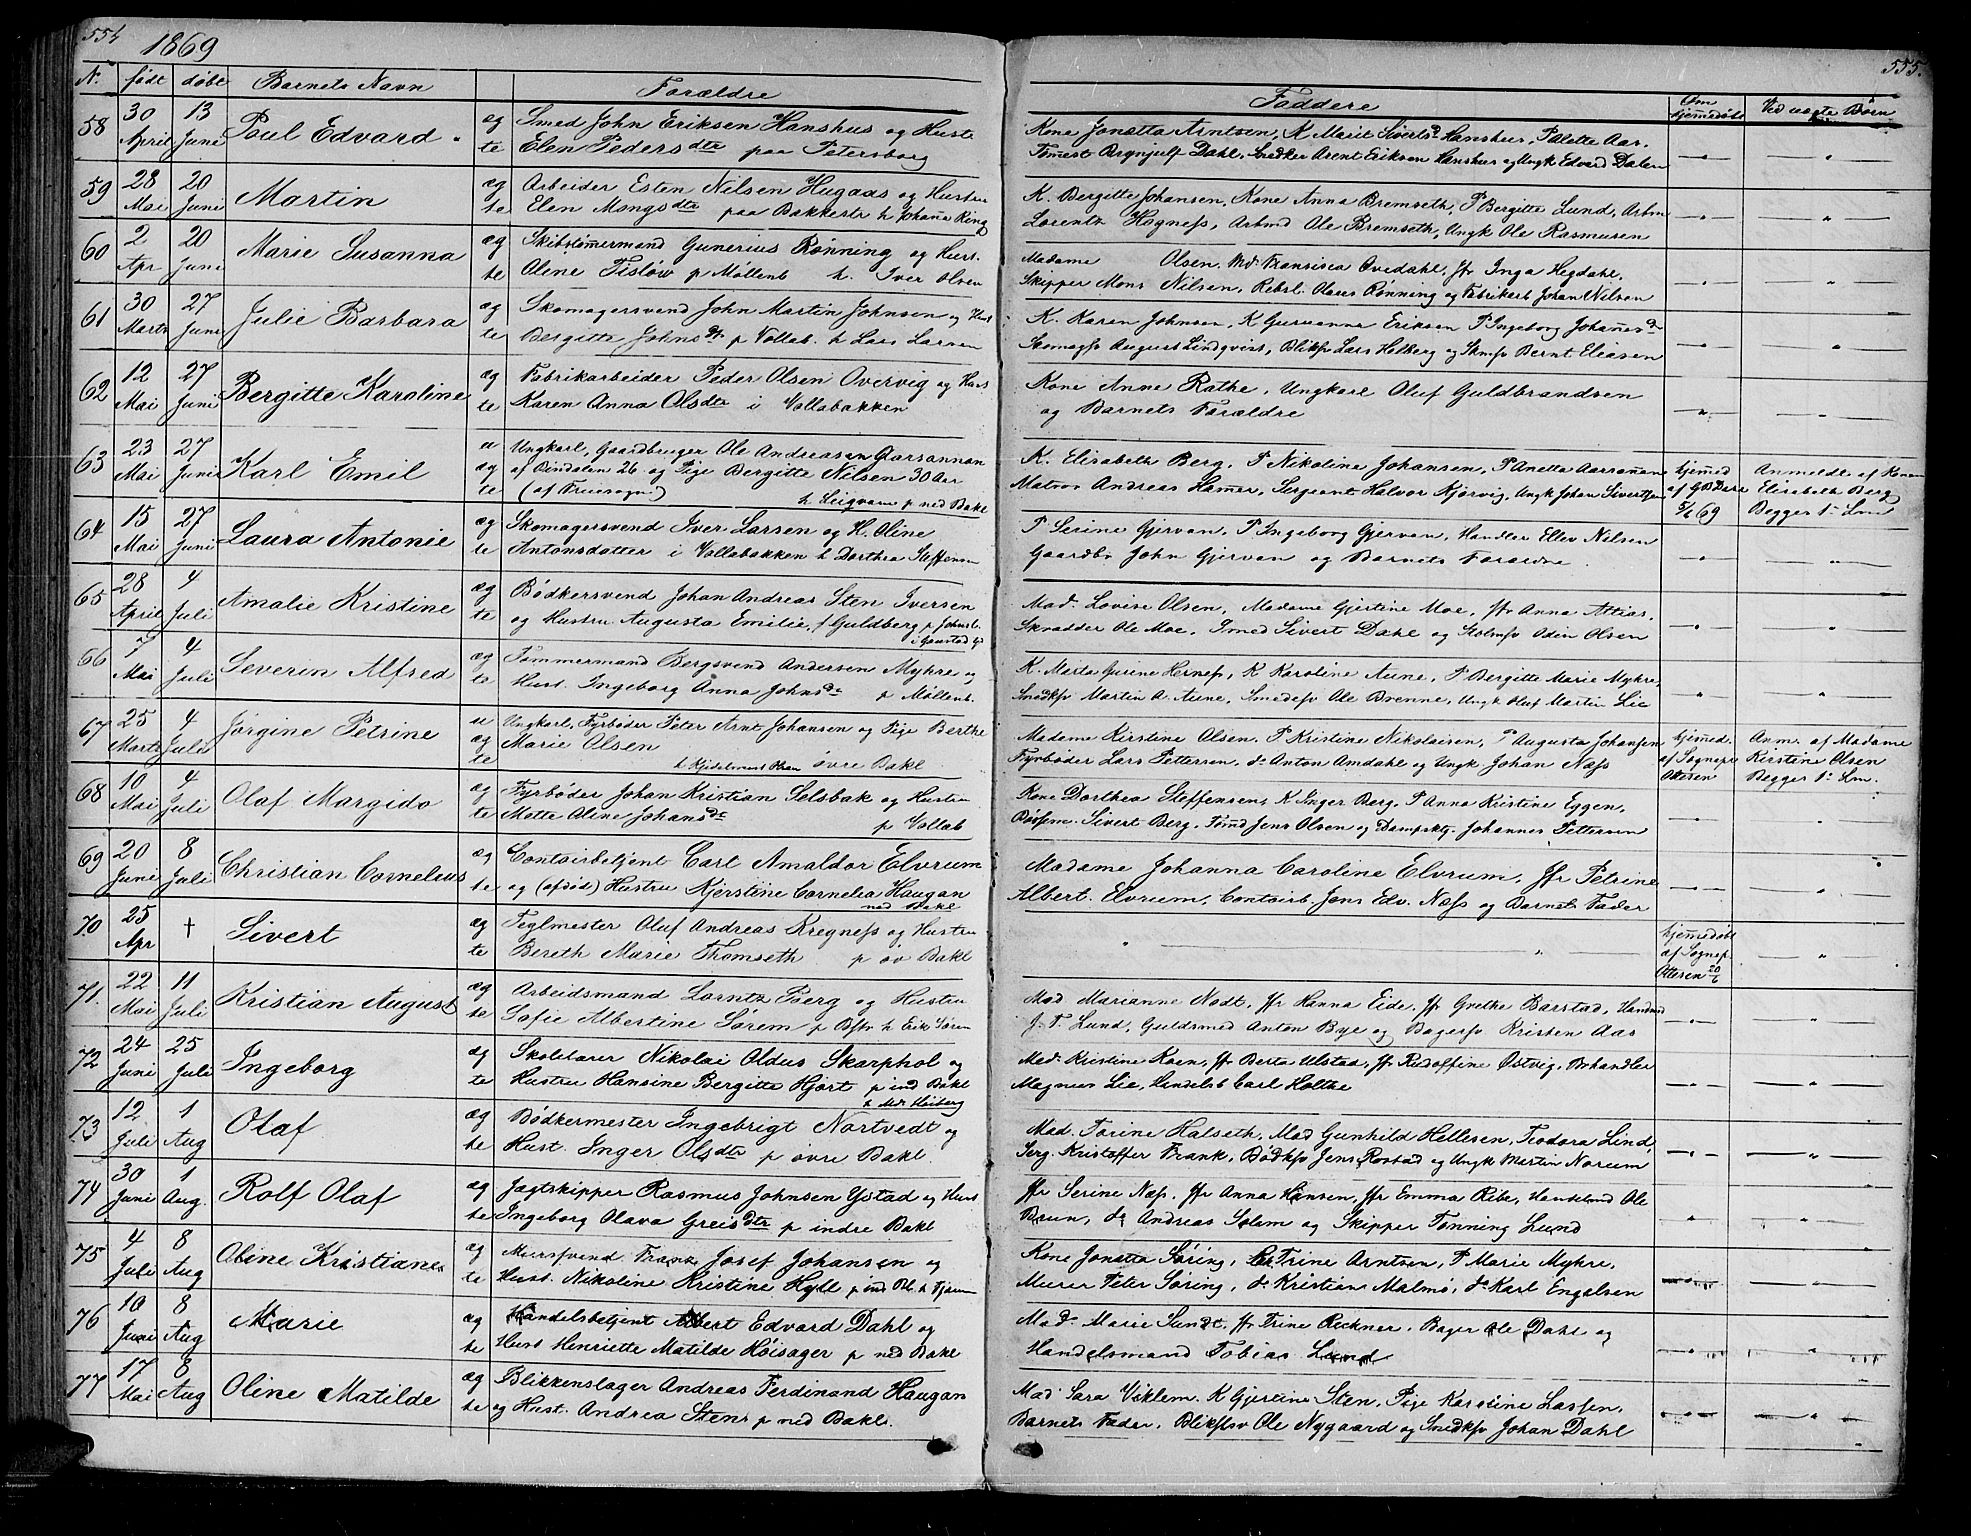 554
1869
N. født døbt Barnets Navn Forældre
58 30 April 13 Juni Poul Edvard ægte Smed John Eriksen Hanshus og Hust
Elen Pedersdtr paa Petersborg
59 28 Mai 20 Juni Martin ægte Arbeider Esten Nilsen Hugaas og Hustru
Elen Mongsdtr paa Bakkestr h Johana Ring
60 2 Apr 20 Juni Marie Susanna ægte Skibstømermand Gunerius Rønning og Hust.
Oline Tisløw p Møllenb h. Iver Olsen
61 30 Marts 27 Juni Julie Barbara ægte Skomagersvend John Martin Johnsen og Hust
Bergitte Johnsdtr p Vollab. h Lars Larsen
62 12 Mai 27 Juni Bergitte Karoline ægte Fabrikarbeider Peder Olsen Overvig og Hus
Karen Anna Olsdtr i Vollabakken
63 23 Mai 27 Juni Karl Emil uægte Ungkarl, Gaardbruger Ole Andreasen Garsannan
af Rindalen 26 og Pige Bergitte Nilsen 30 Aar
(af Fruesogn)
p ned Bakl
64 15 Mai 27 Juni Laura Antonie ægte Skomagersvend Iver Larsen og H. Oline
Antonsdatter i Vollabakken h Dorthea Steffensen
65 28 April 4 Juli Amalie Kristine ægte Bødkersvend Johan Andreas Sten Iversen
og Hustru Augusta Emilie f Guldberg p Johnsl.
i Gaustad G
66 7 Mai 4 Juli Severin Alfred ægte Tømmermand Bergsvend Andersen Myhre og
Hust. Ingeborg Anna Johnsdtr p Møllenb.
67 25 Marts 4 Juli Jørgine Petrine uægte Ungkarl, Fyrbøder Peter Arnt Johansen og Pige Berthe
Marie Olsen
øvre Bakl
68 10 Mai 4 Juli Olaf Margido ægte Fyrbøder Johan Kristian Selsbak og Hustru
Mette Aline Johansdtr p Vollab
69 20 Juni 8 Juli Christian Cornelius ægte Contoirbetjent Carl Amaldor Elvrum
og (afdød) Hustru Kjerstine Cornelia Haugan
ned Bakl
70 25 Apr † Sivert ægte Teglmester Oluf Andreas Kregness og Hustru
Bereth Marie Thomseth p øv Bakl
71. 22 Mai 11 Juli Kristian August ægte Arbeidsmand Lorntz Berg og Hustru
Sofie Albertine Sørem p Bkstr h Erik Sørem
72 24 Juni 25 Juli Ingeborg ægte Skolelærer Nikolai Oldus Skarphol og
Hustru Hansine Bergitte Hjort p ind Bakl
h Md. Høiberg
73 12 Juli 1 Aug Olaf ægte Bødkermester Ingebrigt Nortvedt og
Hust. Inger Olsdtr p øvre Bakl.
74 30 Juni 1 Aug. Rolf Olaf ægte Jagtskipper Rasmus Johnsen Ystad og Hust
Ingeborg Olava Greisdtr p indre Bakl
75 4 Juli 8 Aug Oline Kristiane ægte Muersvend Franz Josef Johansen og
Hust. Nikoline Kristine Hyll p ind Bl.
76 10 Juni 8 Aug Marie ægte Handelsbetjent Albert Edvard Dahl og
Hust Henriette Matilde Høisager p ned Bakl
77 17 Mai 8 Aug Oline Matilde ægte Blikkenslager Andreas Ferdinand Haugan
og Hust. Andrea Stens p ned Bakl.
555.
Faddere Om hjemedøbt Ved uægte Børn
Kone Jonetta Arntsen, K Marit Sivertsd Hanshus, P Alette Aar.
Tømest Brynjulf Dahl. Snedker Arent Eriksen Hanshus og Ungk Edvard Dalen
K. Bergitte Johansen, Kone Anna Bremseth, P Bergitte Lund, Arbm
Lorentz Hogness, Arbmd Ole Bremseth, Ungk Ole Rasmusen
Madame Olsen, Md. Fransisca Qvedahl, Jfr Inga Hegdahl,
Skipper Mons Nilsen, Rebsl. Olaus Rønning og Fabrikarb Johan Nilsen
K. Karen Johnsen, K Guruanna Eriksen P Ingeborg Johannesd
Skomagsv August Lindqvist, Bliksv Lars Holberg og Skmsv Bernt Eliasen
Kone Anne Rathe, Ungkarl Oluf Guldbrandsen
og Barnets Forældre
K. Elisabeth Berg, P Nikoline Johansen, P Anetta Aarsanan
Matros Andreas Hamer, Sergeant Halvor Kjørvig, Ungk Johan Sivertsen
hjemed af G B Dare 5/6 69
Anmeldt af Konen Elisabeth Berg Begger 1ste Lm
P Serine Gjervan, P Ingeborg Gjervan, Handler Ellev Nilsen
Gaardbr John Gjervan og Barnets Forældre
Mad. Lovise Olsen, Madame Gjertine Moe, Jfr Anna Attias,
Skrædder Ole Moe, Smed Sivert Dahl og Stolmsv Odin Olsen
K. Marta Gurine Herness, K Karoline Aune, P Bergitte Marie Myhre,
Snedksv Martin A. Aune, Smedesv Ole Brenne, Ungk Oluf Martin Lie
Madame Kirstine Olsen, P Kristine Nikolaisen, P Augusta Johansen
Fyrbøder Lars Pettersen, do Anton Amdahl og Ungk Johan Næss
hjemed. af Sognepr Ottesen
Anm. af Madame Kirstine Olsen Begger 1ste Lm.
Kone Dorthea Steffensen, K Inger Berg, P Anna Kristine Eggen,
Sivert Berg, Tømd Jens Olsen og Johannes Pettersen
Madame Johanna Caroline Elvrum, Jfr Petrine
Albert. Elvrum, Contoirb. Jens Edv. Næss og Barnets Fader
hjemedøbt af Sognep. Ottesen 20/6
Mad Marianne Nodt, Jfr Hanna Eide, Jfr Grethe Barstad, Handmd
J. T. Lund, Guldsmed Anton Bye og Bagersv Kristen Aas
Mad. Kristine Koen, Jfr Berta Ulstad, Jfr Redoffine Østvig, Brhandler
Magnus Lie, Handelsb Carl Holtke
Mad. Torine Halseth, Mad Gunhild Hellesen, Teodora Lind,
Serg. Kristoffer Frank, Bødksv Jens Rostad og Ungk Martin Norum
Jfr Serine Næss, Jfr Anna Hansen, Jfr Emma Ribe, Handelsmd Ole
Brun, do Andreas Solem og Skipper Tønning Lund
Kone Jonetta Søring, Trine Arntsen, P Marie Myhre,
Murer Peter Søring, do Kristian Malmø, do Karl Engelsen
Mad. Marie Sundt, Jfr Trine Rickner, Bager Ole Dahl og
Handelsmand Tobias Lund
Mad Sara Viklem, K Gjertine Sten, Pige Karoline Lassen,
Barnets Fader, Blikslsv Ole Nygaard og Snedksv Johan Dahl